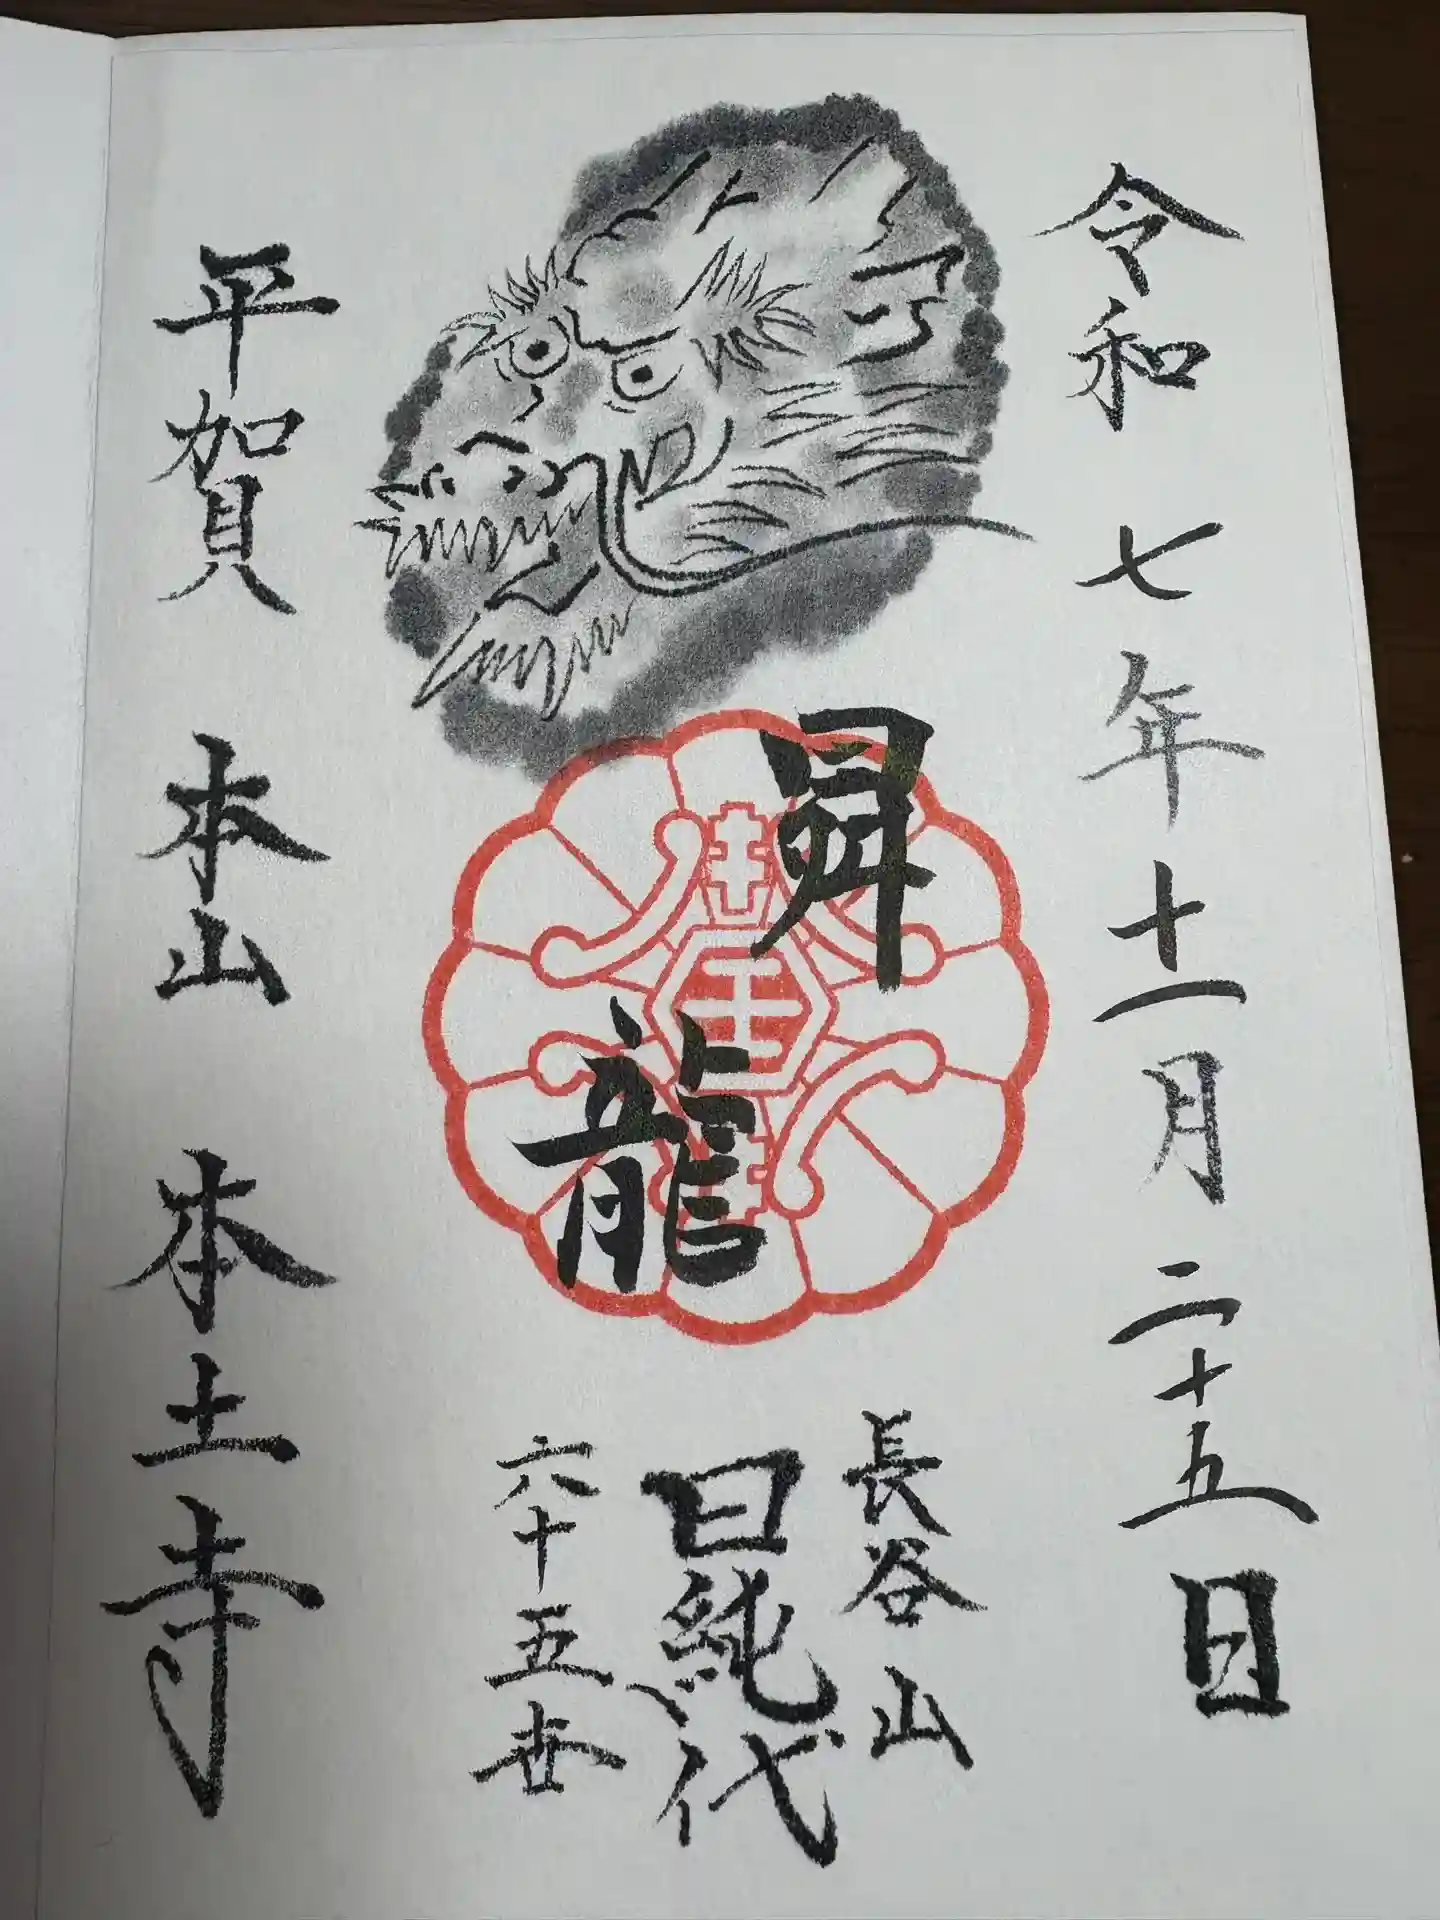 令和 七年 十一月 二十五日
昇龍
長谷山
日純 代
六十五世
平賀 本山 本土寺